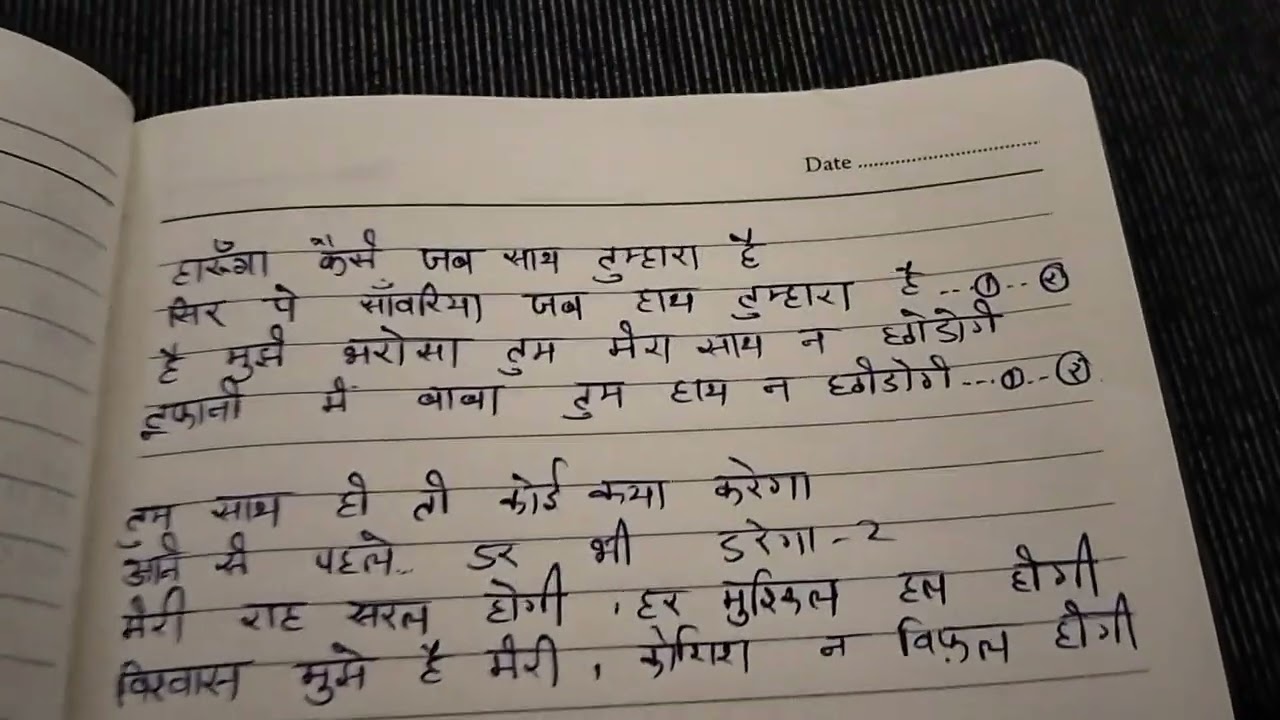 Date ..............................
हारूँगा कैसे जब साथ तुम्हारा है
सिर पे साँवरिया जब हाथ तुम्हारा है ...①...②
है मुझे भरोसा तुम मेरा साथ न छोडोगे
तूफानो में बाबा तुम हाथ न छोडोगे ...①...②
तुम साथ हो तो कोई क्या करेगा
आने से पहले.. डर भी डरेगा - 2
मेरी राह सरल होगी , हर मुश्किल हल होगी
विश्वास मुझे है मेरी , कोशिश न विफ़ल होगी